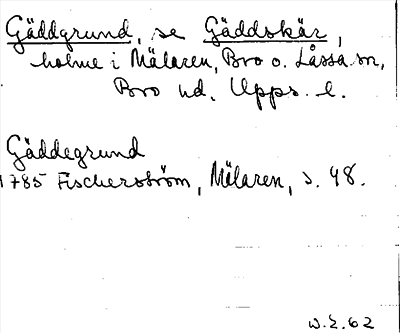 Gäddgrund, se Gäddskär,
holme i Mälaren, Bro o. Låssa sn,
Bro hd. Upps. l.
Gäddegrund
1785 Fischerström, Mälaren, s. 48.
W.E. 62